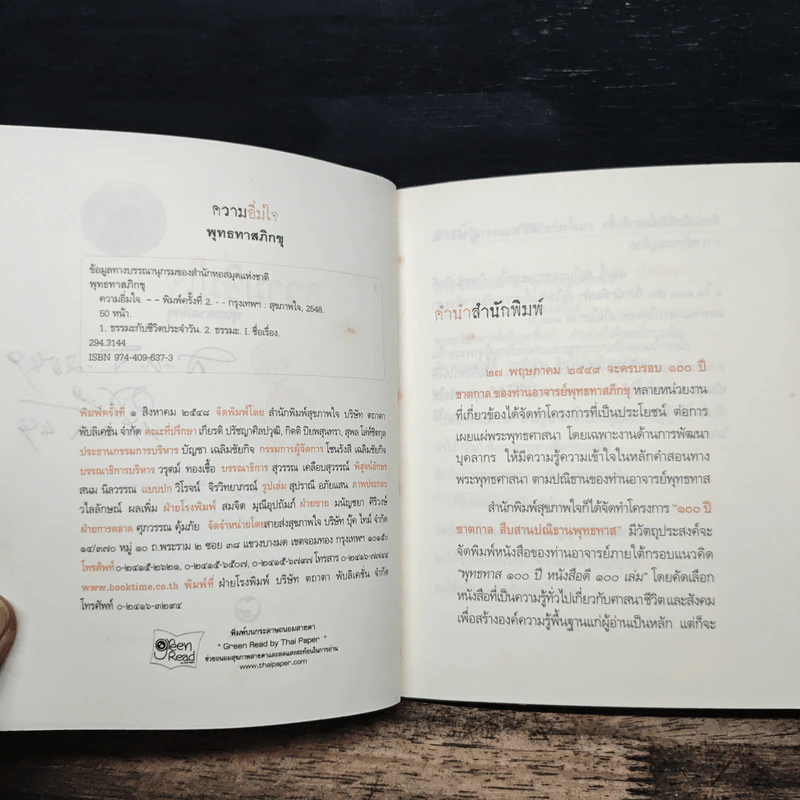 ความอิ่มใจ
พุทธทาสภิกขุ
ข้อมูลทางบรรณานุกรมของสำนักหอสมุดแห่งชาติ
พุทธทาสภิกขุ
ความอิ่มใจ. -- พิมพ์ครั้งที่ 2. -- กรุงเทพฯ : สุขภาพใจ, 2548.
50 หน้า.
1. ธรรมะกับชีวิตประจำวัน. 2. ธรรมะ. I. ชื่อเรื่อง.
294.3144
ISBN 974-409-637-3
พิมพ์ครั้งที่ ๑ สิงหาคม ๒๕๔๘ จัดพิมพ์โดย สำนักพิมพ์สุขภาพใจ บริษัท ตถาตา
พับลิเคชั่น จำกัด คณะที่ปรึกษา เกียรติ ปรัชญาศิลปวุฒิ, กิตติ ปิยพสุนทรา, สุพล โล่ห์ชิตกุล
ประธานกรรมการบริหาร บัญชา เฉลิมชัยกิจ กรรมการผู้จัดการ โชนรังสี เฉลิมชัยกิจ
บรรณาธิการบริหาร วรุตม์ ทองเชื้อ บรรณาธิการ สุวรรณ เคลือบสุวรรณ์ พิสูจน์อักษร
สนม นิลวรรณ แบบปก วิโรจน์ จิรวิทยาภรณ์ รูปเล่ม สุปราณี อภัยแสน ภาพประกอบ
วไลลักษณ์ ผลเพิ่ม ฝ่ายโรงพิมพ์ สมจิต มุณีอุปถัมภ์ ฝ่ายขาย มนัญชยา ศิริวงษ์
ฝ่ายการตลาด ศุภวรรณ คุ้มภัย จัดจำหน่ายโดยสายส่งสุขภาพใจ บริษัท บุ๊ค ไทม์ จำกัด
๑๔/๓๗๐ หมู่ ๑๐ ถ.พระราม ๒ ซอย ๓๘ แขวงบางมด เขตจอมทอง กรุงเทพฯ ๑๐๑๕๐
โทรศัพท์ ๐-๒๔๑๕-๒๖๒๑, ๐-๒๔๑๕-๖๕๐๗, ๐-๒๔๑๕-๖๗๙๗ โทรสาร ๐-๒๔๑๖-๗๗๔๔
www.booktime.co.th พิมพ์ที่ ฝ่ายโรงพิมพ์ บริษัท ตถาตา พับลิเคชั่น จำกัด
โทรศัพท์ ๐-๒๔๑๖-๓๒๙๔
Green Read
พิมพ์บนกระดาษถนอมสายตา
" Green Read by Thai Paper "
ช่วยถนอมสุขภาพสายตาและลดแสงสะท้อนในการอ่าน
www.thaipaper.com
คำนำสำนักพิมพ์
๒๗ พฤษภาคม ๒๕๔๙ จะครบรอบ ๑๐๐ ปี
ชาตกาล ของท่านอาจารย์พุทธทาสภิกขุ หลายหน่วยงาน
ที่เกี่ยวข้องได้จัดทำโครงการที่เป็นประโยชน์ ต่อการ
เผยแผ่พระพุทธศาสนา โดยเฉพาะงานด้านการพัฒนา
บุคลากร ให้มีความรู้ความเข้าใจในหลักคำสอนทาง
พระพุทธศาสนา ตามปณิธานของท่านอาจารย์พุทธทาส
สำนักพิมพ์สุขภาพใจก็ได้จัดทำโครงการ "๑๐๐ ปี
ชาตกาล สืบสานปณิธานพุทธทาส" มีวัตถุประสงค์จะ
จัดพิมพ์หนังสือของท่านอาจารย์ภายใต้กรอบแนวคิด
"พุทธทาส ๑๐๐ ปี หนังสือดี ๑๐๐ เล่ม" โดยคัดเลือก
หนังสือที่เป็นความรู้ทั่วไปเกี่ยวกับศาสนาชีวิตและสังคม
เพื่อสร้างองค์ความรู้พื้นฐานแก่ผู้อ่านเป็นหลัก แต่ก็จะ